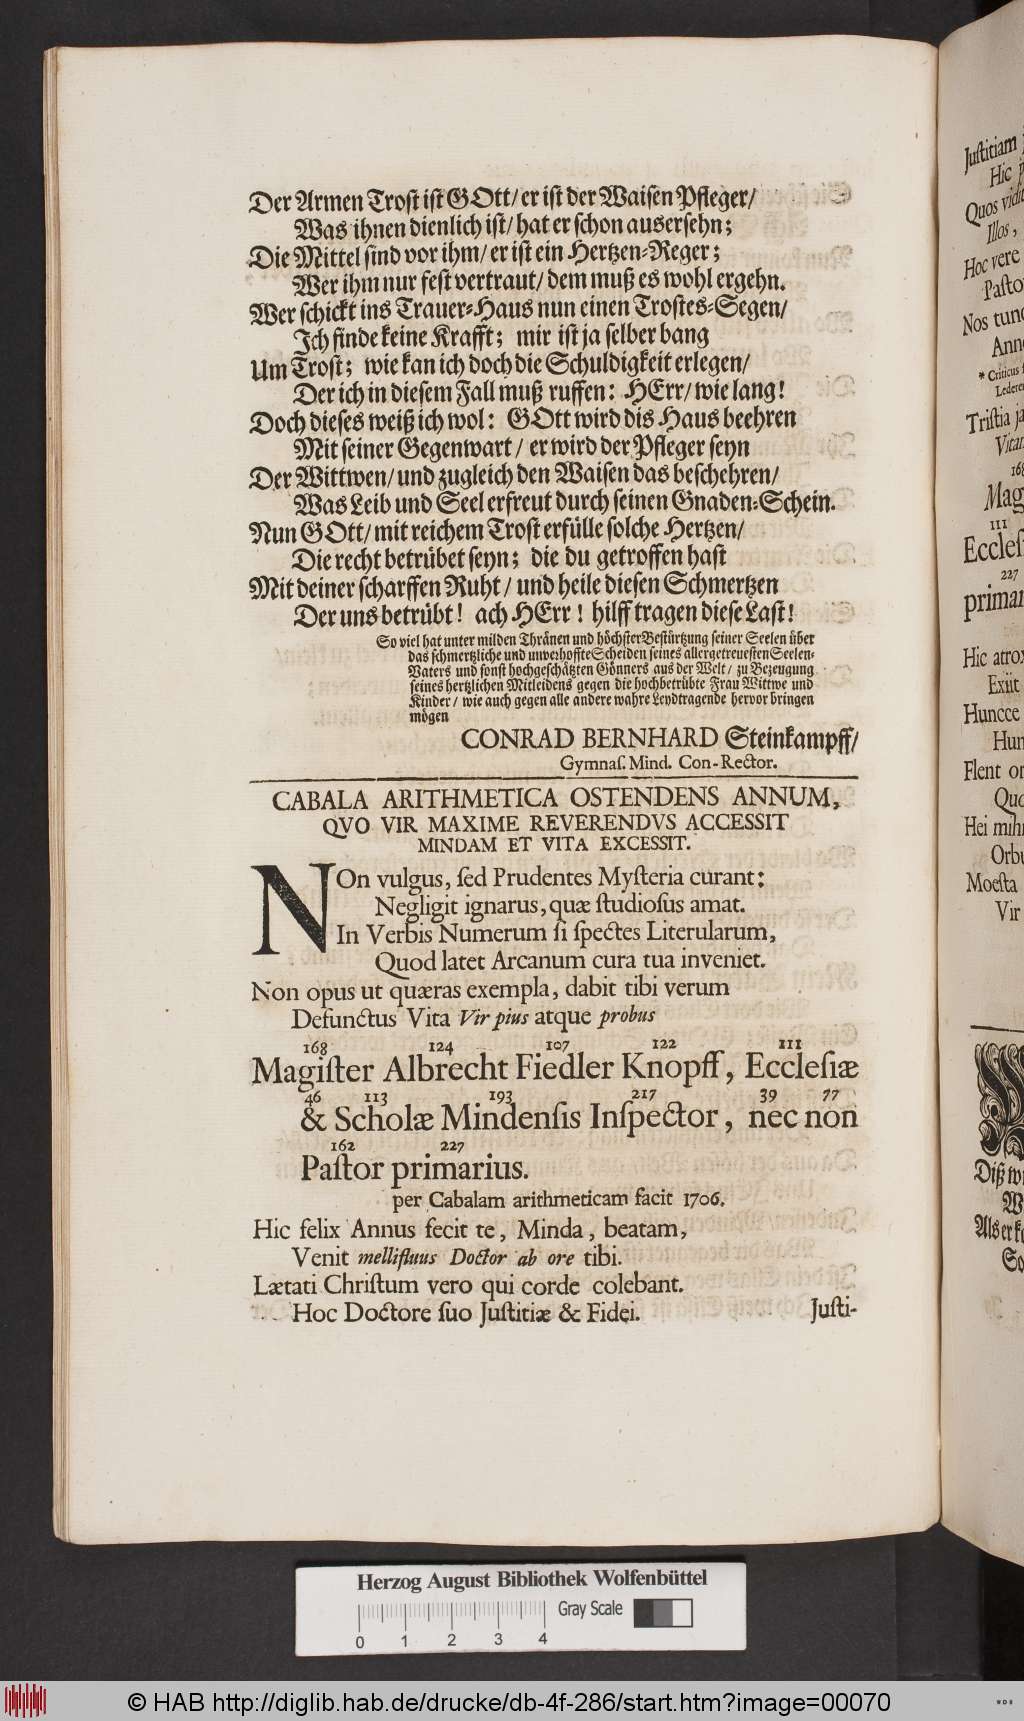 Der Armen Trost ist GOtt/ er ist der Waisen Pfleger/
Was ihnen dienlich ist/ hat er schon ausersehn;
Die Mittel sind vor ihm/ er ist ein Hertzen-Reger;
Wer ihm nur fest vertraut/ dem muß es wohl ergehn.
Wer schickt ins Trauer-Haus nun einen Trostes-Segen/
Ich finde keine Krafft; mir ist ja selber bang
Um Trost; wie kan ich doch die Schuldigkeit erlegen/
Der ich in diesem Fall muß ruffen: HErr/ wie lang!
Doch dieses weiß ich wol: GOtt wird dis Haus beehren
Mit seiner Gegenwart / er wird der Pfleger seyn
Der Wittwen/ und zugleich den Waisen das beschehren/
Was Leib und Seel erfreut durch seinen Gnaden-Schein.
Nun GOtt/ mit reichem Trost erfülle solche Hertzen/
Die recht betrübet seyn; die du getroffen hast
Mit deiner scharffen Ruht / und heile diesen Schmertzen
Der uns betrübt! ach HErr! hilff tragen diese Last!
So viel hat unter milden Thränen und höchster Bestürtzung seiner Seelen über
das schmertzliche und unverhoffte Scheiden seines allergetreuesten Seelen-
Vaters und sonst hochgeschätzten Gönners aus der Welt/ zu Bezeugung
seines hertzlichen Mitleidens gegen die hochbetrübte Frau Wittwe und
Kinder/ wie auch gegen alle andere wahre Leydtragende hervor bringen
mögen
CONRAD BERNHARD Steinkampff/
Gymnaſ. Mind. Con-Rector.
CABALA ARITHMETICA OSTENDENS ANNUM,
QVO VIR MAXIME REVERENDVS ACCESSIT
MINDAM ET VITA EXCESSIT.
NOn vulgus, ſed Prudentes Myſteria curant:
Negligit ignarus, quæ ſtudioſus amat.
In Verbis Numerum ſi ſpectes Literularum,
Quod latet Arcanum cura tua inveniet.
Non opus ut quæras exempla, dabit tibi verum
Defunctus Vita Vir pius atque probus
168 124 107 122 111
Magiſter Albrecht Fiedler Knopff, Eccleſiæ
46 113 193 217 39 77
& Scholæ Mindenſis Inſpector, nec non
162 227
Paſtor primarius.
per Cabalam arithmeticam facit 1706.
Hic felix Annus fecit te, Minda, beatam,
Venit mellifluus Doctor ab ore tibi.
Lætati Chriſtum vero qui corde colebant.
Hoc Doctore ſuo Juſtitiæ & Fidei.
Juſti-
Juſtitiam
Hic
Quos
Illos,
Hoc vere
Nos tunc
* Criticus
Triſtia
111
227
Hic atrox
Exiit
Huncce
Flent
Hei mihi
Moeſta
Vir
Herzog August Bibliothek Wolfenbüttel
Gray Scale
0 1 2 3 4
© HAB http://diglib.hab.de/drucke/db-4f-286/start.htm?image=00070